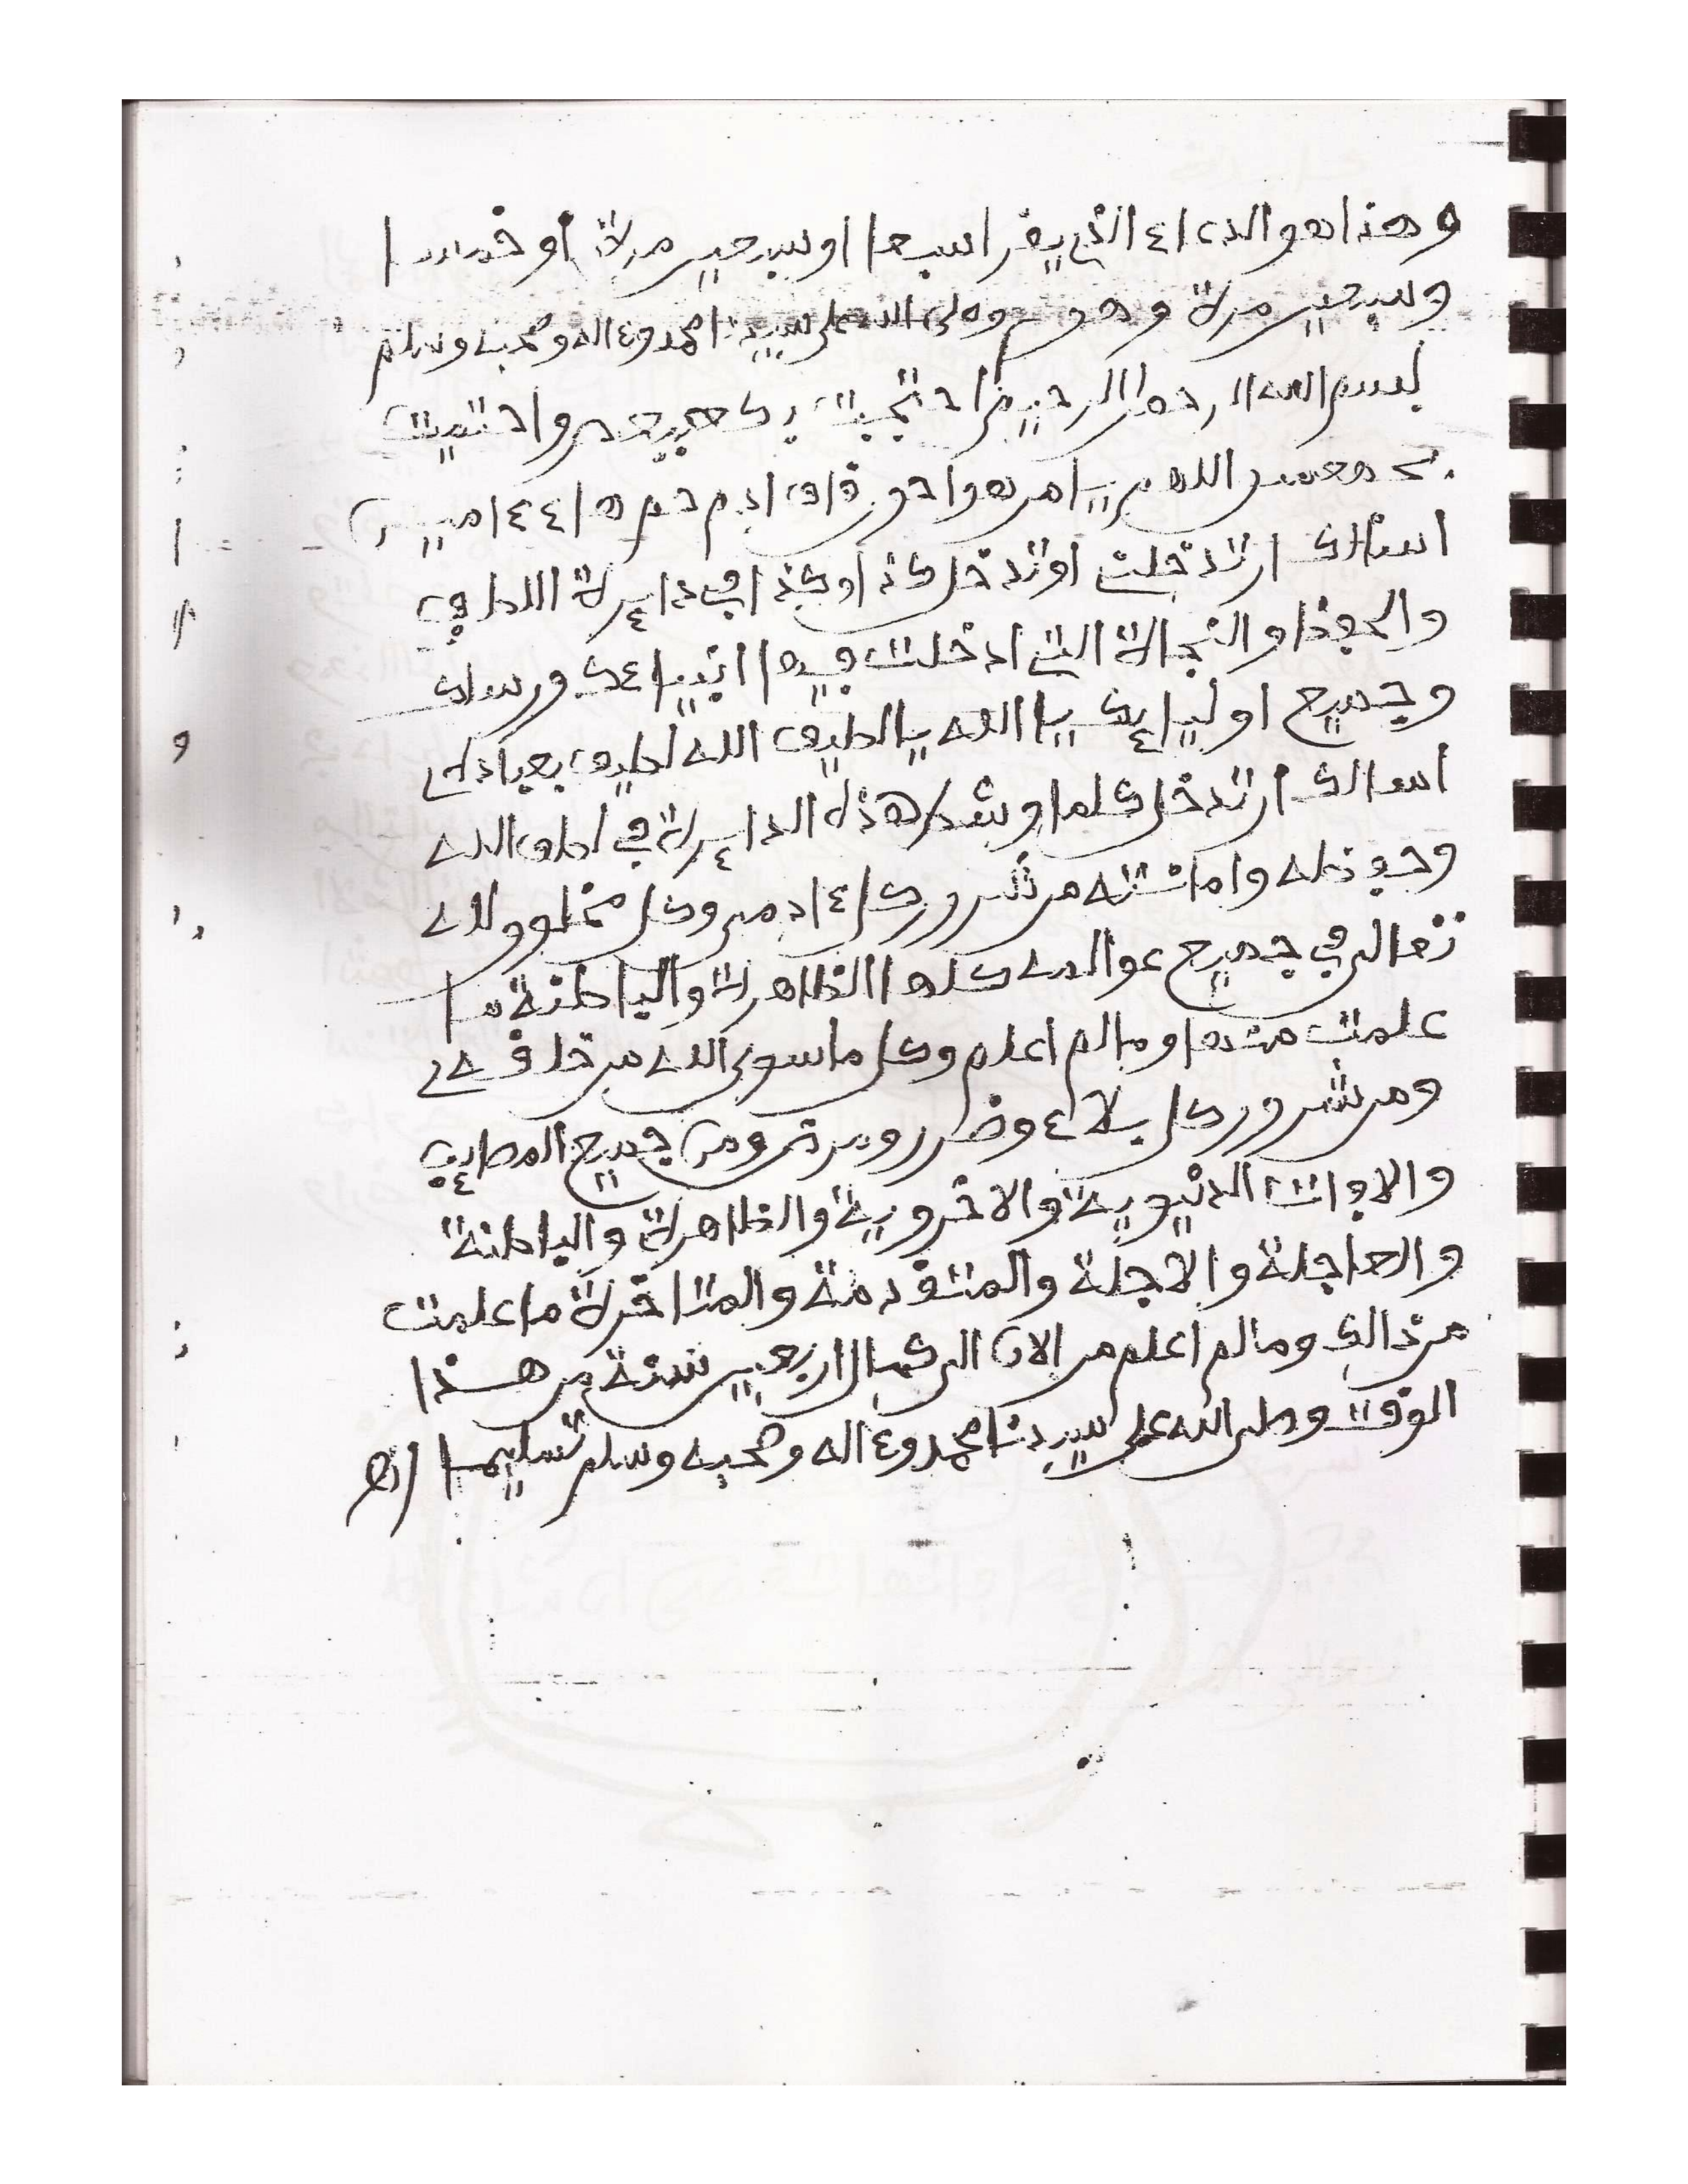 وهذا هو الدعاء الذي يقرا سبعا او سبعين مرة أو خمسا
وسبعين مرة وهو وصلى الله على سيدنا محمد وءاله وصحبه وسلم
بسم الله الرحمن الرحيم احتجبت بكهيعص واحتميت
بحمعسق اللهم يا من هو احون قاف ادم حم هاء ءامين
اسئالك ان تدخلني او تدخل كذا وكذا في دايرة اللطف
والحفظ والنجاة التي ادخلت فيها انبياءك ورسلك
وجميع اوليايك يا الله يا لطيف الله لطيف بعباده
اسالك ان تدخل كلما وشكل هذه الدايرة في لطف الله
وحفظه وامانته من شرور كل ءادمي وكل مخلوق لله
تعالى في جميع عوالمه كلها الظاهرة والباطنة ما
علمت منها وما لم اعلم وكل ما سوى الله من خلقه
ومن شرور كل بلاء وضرر ومن جميع المصايب
والافات الدنيوية والاخروية والظاهرة والباطنة
والعاجلة والاجلة والمتقدمة والمتاخرة ما علمت
من ذالك وما لم اعلم من الان الى كمال اربعين سنة من هذا
الوقت وصلى الله على سيدنا محمد وءاله وصحبه وسلم تسليما اهـ